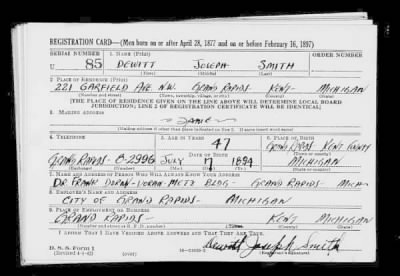 REGISTRATION CARD—(Men born on or after April 28, 1877 and on or before February 16, 1897)
SERIAL NUMBER 1. NAME (Print) ORDER NUMBER
U 85 DEWITT JOSEPH SMITH
(First) (Middle) (Last)
2. PLACE OF RESIDENCE (Print)
221 GARFIELD AVE N.W. GRAND RAPIDS KENT MICHIGAN
(Number and street) (Town, township, village, or city) (County) (State)
[THE PLACE OF RESIDENCE GIVEN ON THE LINE ABOVE WILL DETERMINE LOCAL BOARD
JURISDICTION; LINE 2 OF REGISTRATION CERTIFICATE WILL BE IDENTICAL]
3. MAILING ADDRESS
SAME
[Mailing address if other than place indicated on line 2. If same insert word same]
4. TELEPHONE 5. AGE IN YEARS 6. PLACE OF BIRTH
47 GRAND RAPIDS KENT COUNTY
DATE OF BIRTH (Town or county)
GRAND RAPIDS- 8-2996 JULY 17 1894 MICHIGAN
(Exchange) (Number) (Mo.) (Day) (Yr.) (State or country)
7. NAME AND ADDRESS OF PERSON WHO WILL ALWAYS KNOW YOUR ADDRESS
DR. FRANK BLDG- GRAND RAPIDS- MICH
8. EMPLOYER'S NAME AND ADDRESS
CITY OF GRAND RAPIDS- MICHIGAN
9. PLACE OF EMPLOYMENT OR BUSINESS
GRAND RAPIDS- KENT MICHIGAN
(Number and street or R. F. D. number) (Town) (County) (State)
I AFFIRM THAT I HAVE VERIFIED ABOVE ANSWERS AND THAT THEY ARE TRUE.
D. S. S. Form 1
(Revised 4-1-42) (over) Dewitt Joseph Smith